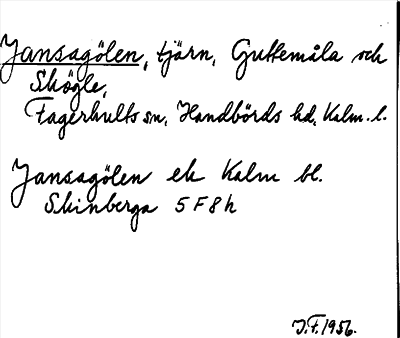 Jansagölen, tjärn, Guttemåla och
Skögle,
Fagerhults sn, Handbörds hd, Kalm. l.
Jansagölen ek Kalm bl.
Skinberga 5 F 8 h
J.F. 1956.